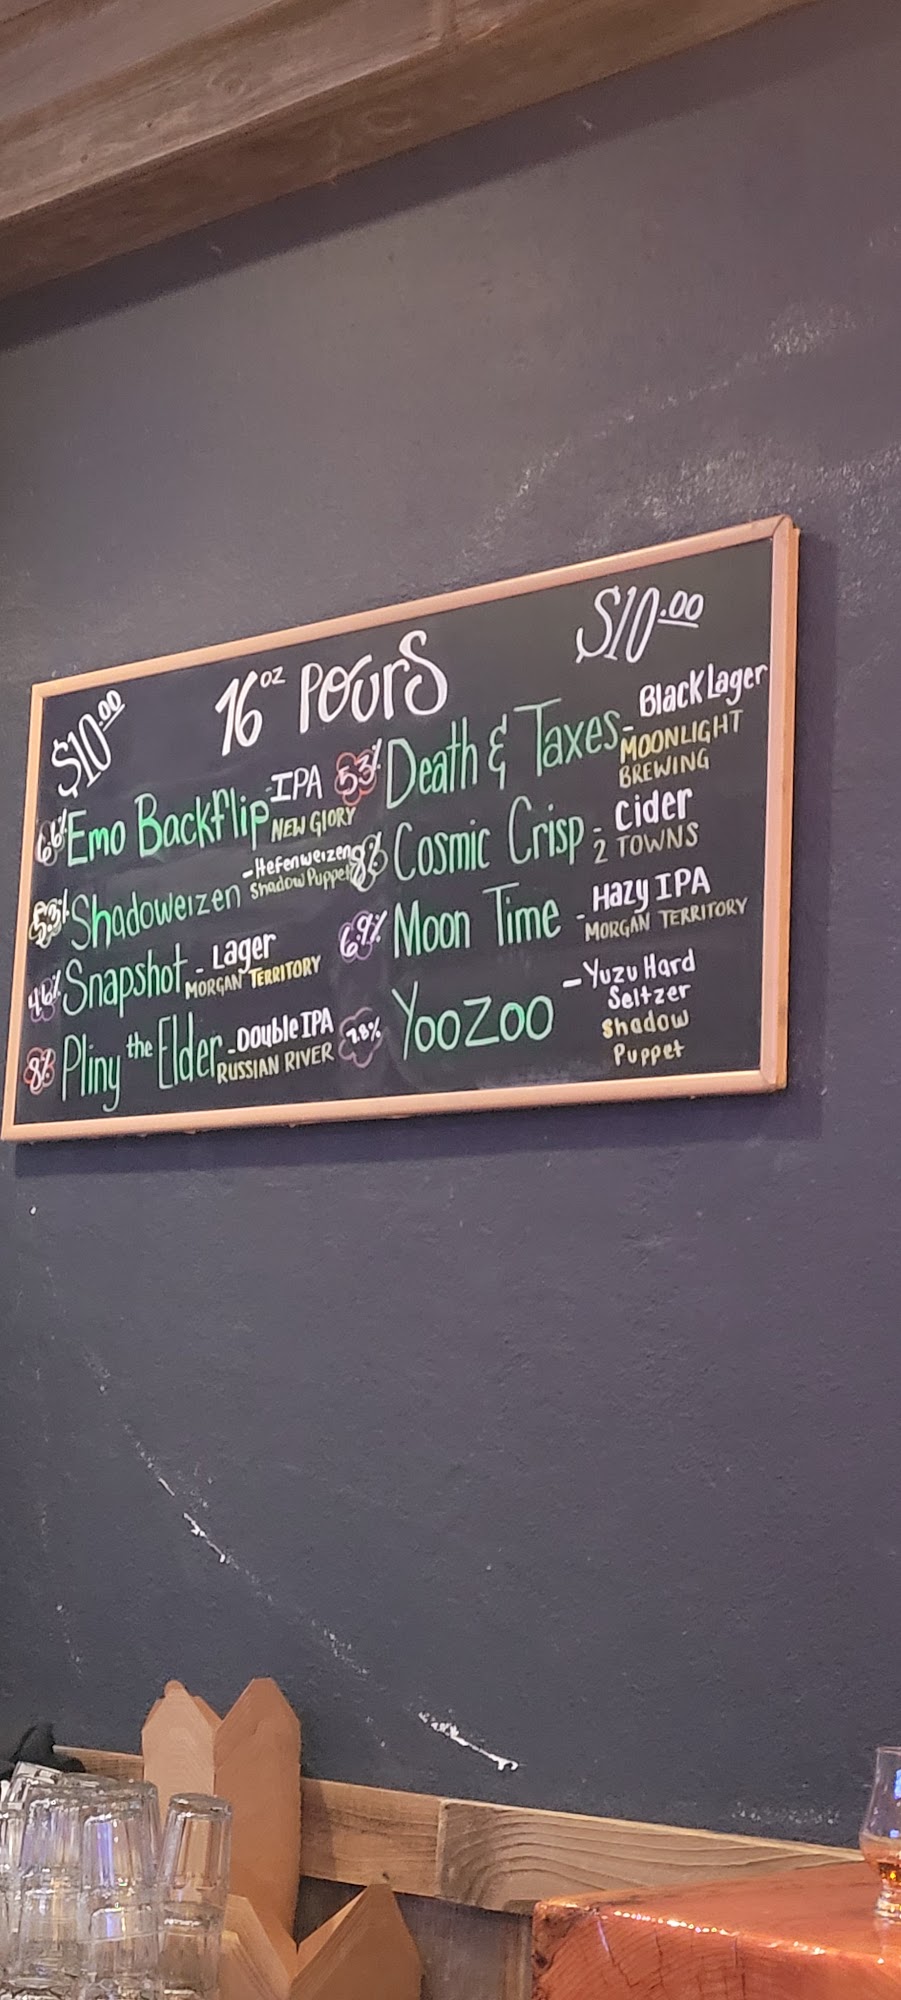 $10.00
16oz Pours
$10.00
6.6% Emo Backflip - IPA
NEW GlORY
5.3% Shadoweizen - Hefenweizen
Shadow Puppet
4.6% Snapshot - Lager
MORGAN TERRITORY
8% Pliny the Elder - Double IPA
RUSSIAN RIVER
5.3% Death & Taxes - Black Lager
MOONLIGHT
BREWING
8% Cosmic Crisp - Cider
2 TOWNS
6.9% Moon Time - Hazy IPA
MORGAN TERRITORY
7.8% YooZoo - Yuzu Hard
Seltzer
Shadow
Puppet